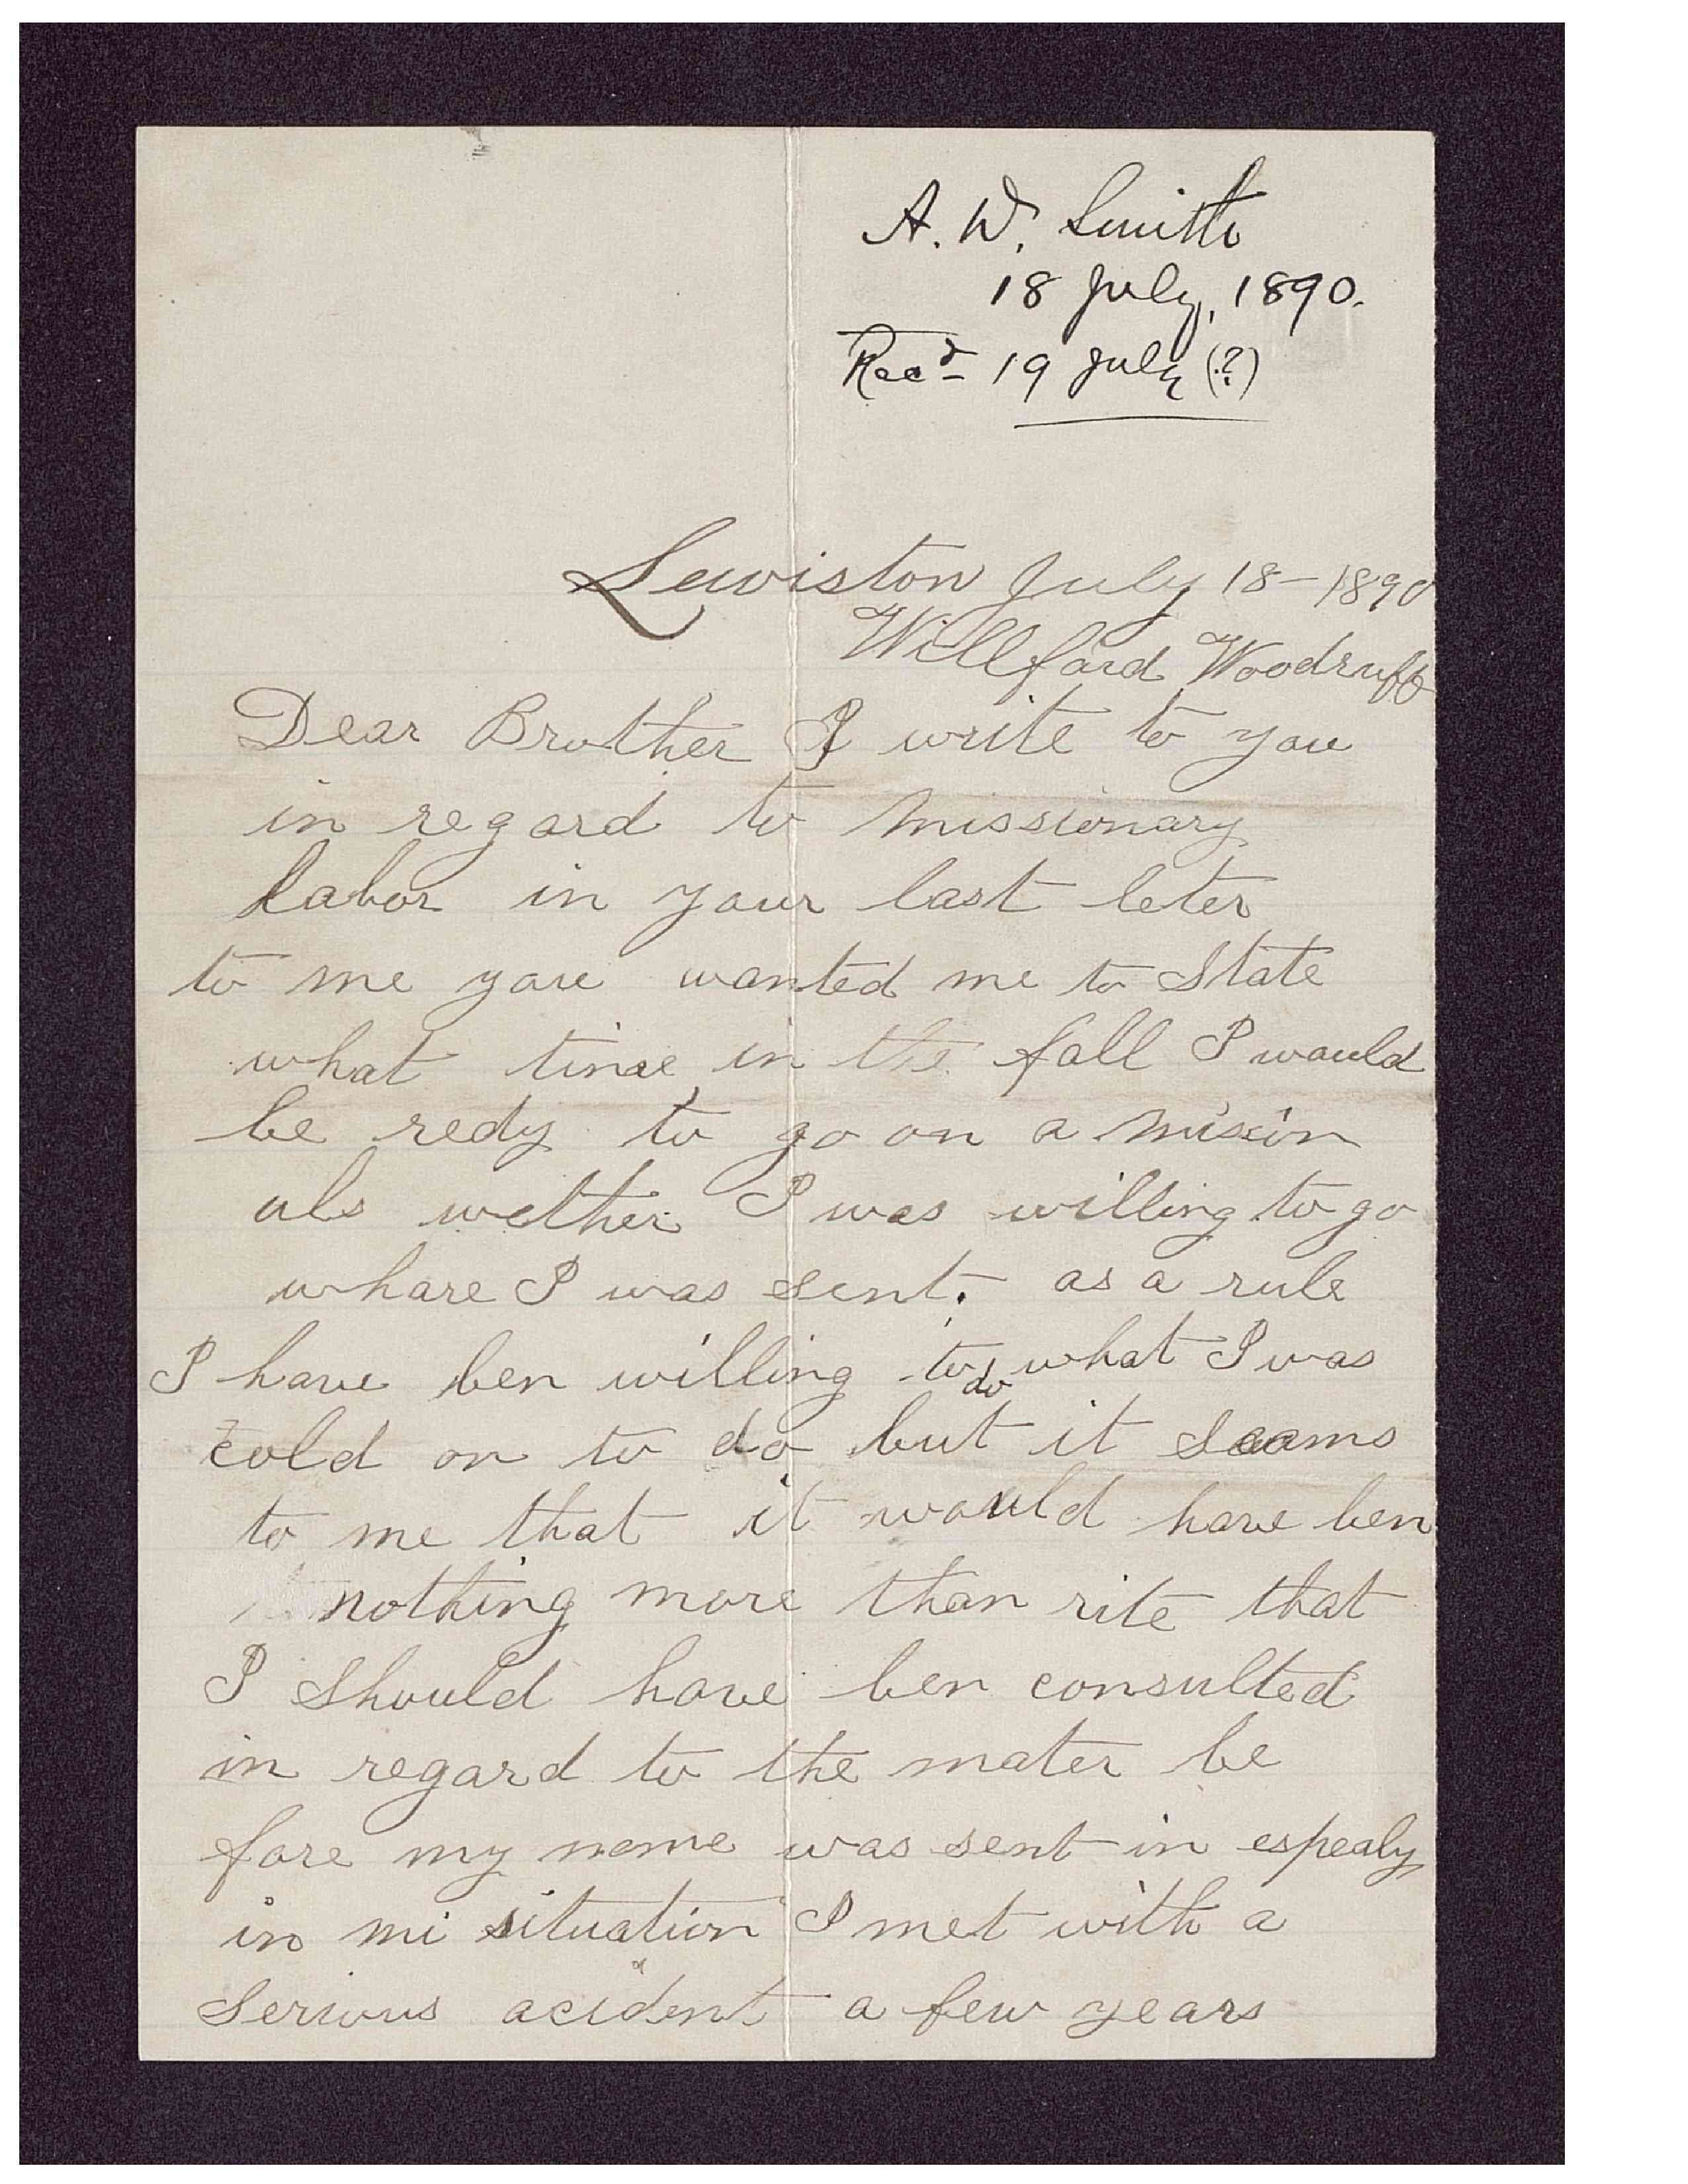 A. W. Smith
18 July, 1890.
Recd- 19 July (?)
Lewiston July 18-1890
Willford Woodruff
Dear Brother I write to you
in regard to missionary
labor in your last leter
to me you wanted me to State
what time in the fall I would
be redy to go on a mision
als wether I was willing to go
whare I was sent. as a rule
I have ben willing to do what I was
cold on to do but it seams
to me that it would have ben
nothing more than rite that
I should have ben consulted
in regard to the mater be
fore my name was sent in espealy
in mi situation I met with a
Serious acident a few years